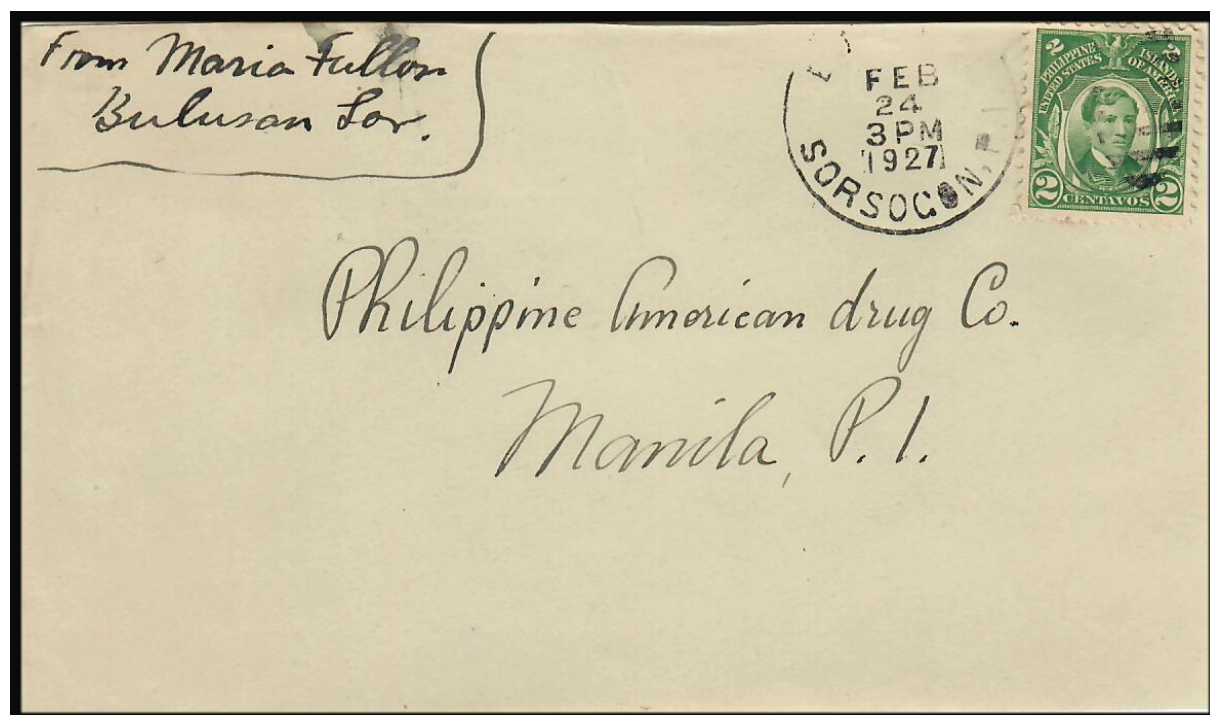 From Maria Fullon
Bulusan Sor.
FEB
24
3 PM
1927
SORSOGON, P.I.
2 2
PHILIPPINE ISLANDS
UNITED STATES OF AMERICA
2 CENTAVOS 2
Philippine American drug Co.
Manila, P.I.